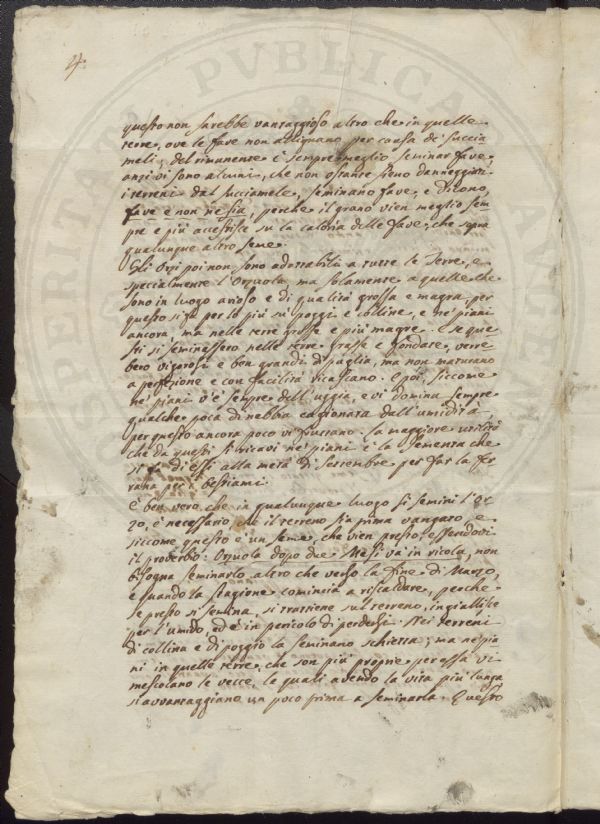 4.
questo non sarebbe vantaggioso altro che in quelle
terre, ove le fave non allignano per causa de' succia
meli; del rimanente è sempre meglio seminar fave,
anzi vi sono alcuni, che non ostante sieno danneggiati
i terreni dal succiamele, seminano fave, e dicono,
fave e non ne sia, perchè il grano vien meglio sem
pre e più accestisce su la caloria delle fave, che sopra
qualunque altro seme.
Gli Orzi poi non sono adattabili a tutte le Terre, e
specialmente l'Orzuola, ma solamente a quelle che
sono in luogo arioso e di qualità grossa e magra, per
questo si fa per lo più su' poggi e colline, e ne' piani
ancora, ma nelle terre grosse e più magre. E se que
sti si seminassero nelle terre grasse e fondate, verre
bero vigorosi e ben grandi di paglia, ma non maturano
a perfezione e con facilità ricascano. E poi, siccome
ne' piani v'è sempre dell'uggia, e vi domina sempre
qualche poca di nebbia cagionata dall'umidità,
per questo ancora poco vi fruttano. La maggiore utilità
che da questi si ricavi ne' piani è la sementa che
si fa di essi alla metà di Settembre per far la fer
rana per i bestiami.
È ben vero, che in qualunque luogo si semini l'Or
zo, è necessario che il terreno sia prima vangato, e
siccome questo è un seme, che vien presto, essendovi
il proverbio: Orzuola dopo due Mesi và in ricola, non
bisogna seminarlo altro che verso la fine di Marzo,
e quando la stagione comincia a riscaldare, perche
se presto si semina, si trattiene sul terreno, ingiallisce
per l'umido, ed è in pericolo di perdersi. Nei terreni
di collina e di poggio la seminano schietta; ma ne' pia
ni in quelle terre, che son più proprie per essa vi
mescolano le vecce, le quali avendo la vita più lunga
si avvantaggiano un poco prima a seminarla. Questo